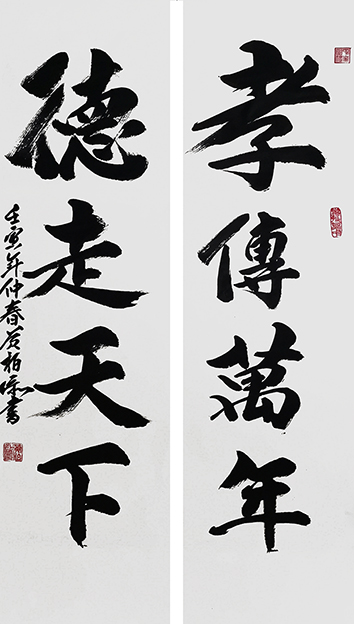 孝傳萬年
德走天下
壬寅年仲春黃柏榮書